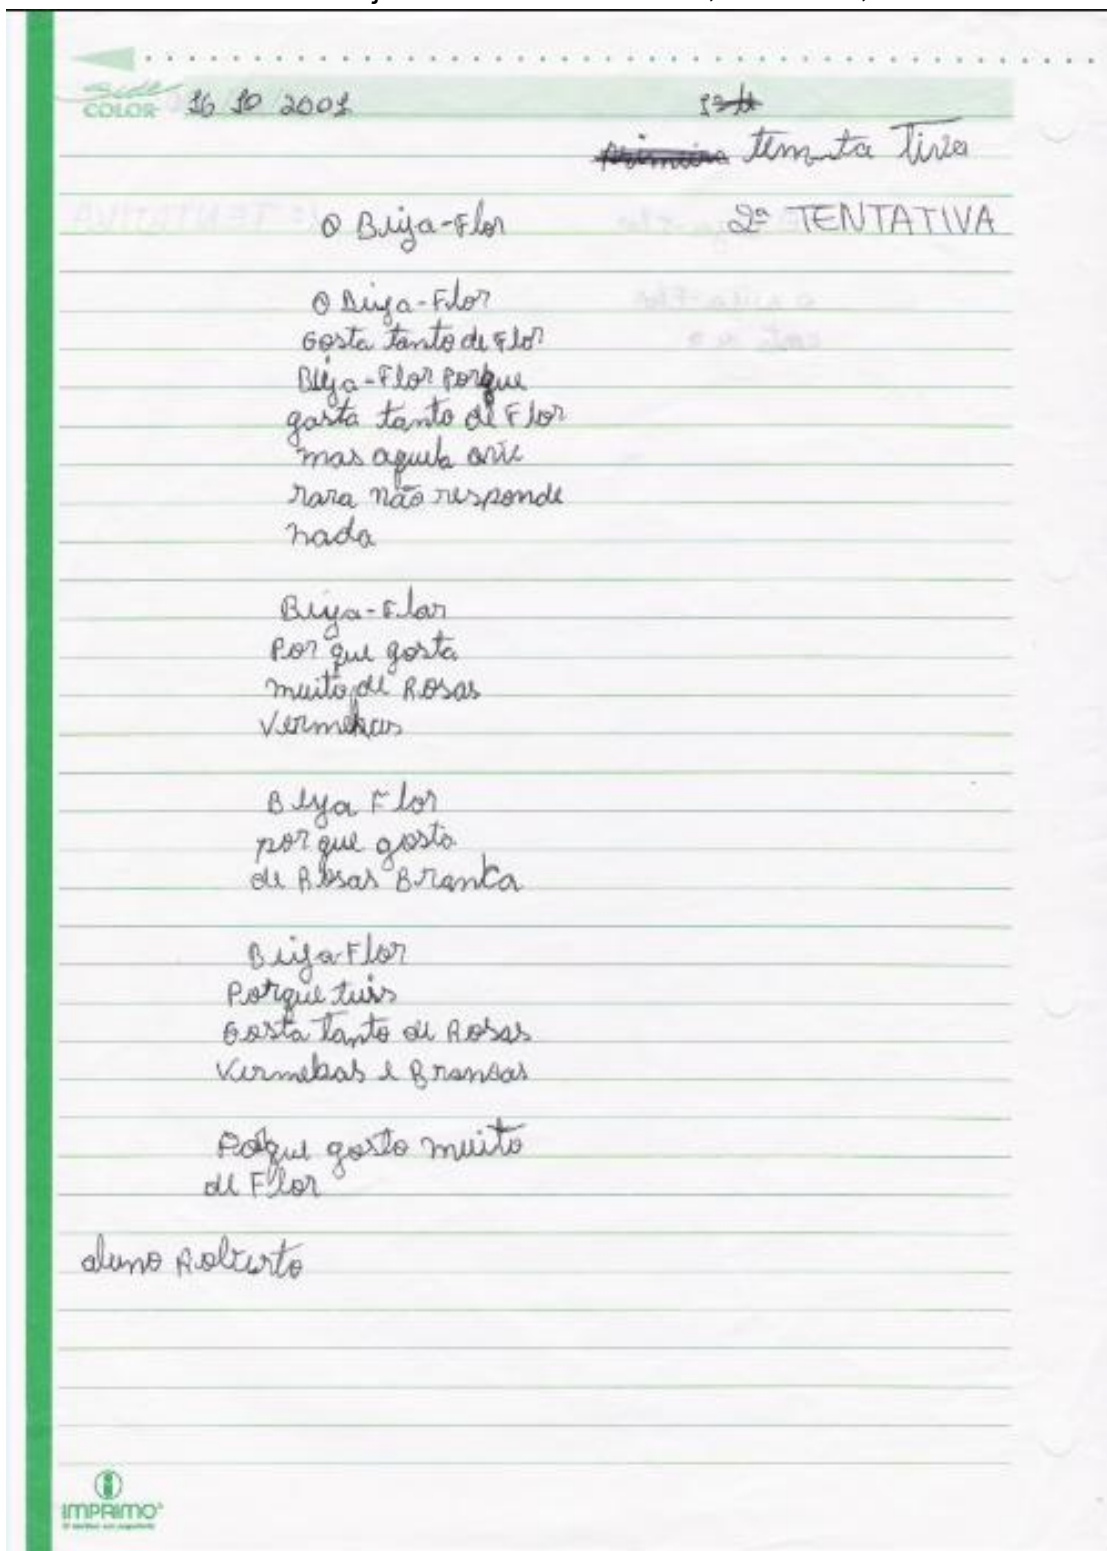 Side
COLOR 16 10 2001
temta tiva
2ª TENTATIVA
O Beija-Flor
O Beija-Flor
Gosta tanto de Flor
Beija-Flor Porque
gosta tanto de Flor
mas aquela ave
rara não responde
nada
Beija-Flor
Por que gosta
muito de Rosas
Vermelhas
Beija Flor
por que gosta
de Rosas Branca
Beija Flor
Porque
Gosta tanto de Rosas
Vermelhas e Brancas
Porque gosto muito
de Flor
aluno Roberto
IMPRIMO